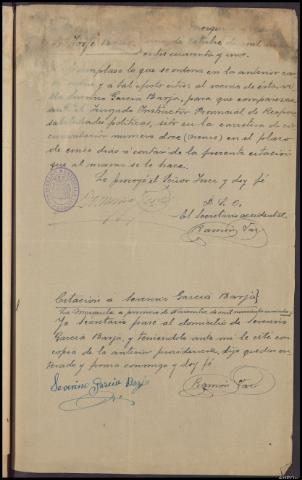 mil
cuarenta y uno.
Cúmplase lo que se ordena en la anterior
y a tal efecto cítese al vecino de esta
Severino García Barja, para que comparezca
ante el Juzgado Instructor Provincial de Respon
sabilidades políticas, sito en la carretera de
numero doce (Orense) en el plazo
de cinco días a contar de la presente citación
que al mismo se le hace.
Lo proveyó el Señor Juez y doy fé
P. S. O.
El Secretario accidental
Ramón Paz
Citación a Severino García Barja}
a primero de Noviembre de mil novecientos cuarenta y uno
Yo Secretario pasé al domicilio de Severino
García Barja, y teniéndole ante mí le leí con
copia de la anterior providencia, dijo quedar en
terado y firma conmigo y doy fé
Severino García Barja
Ramón Paz